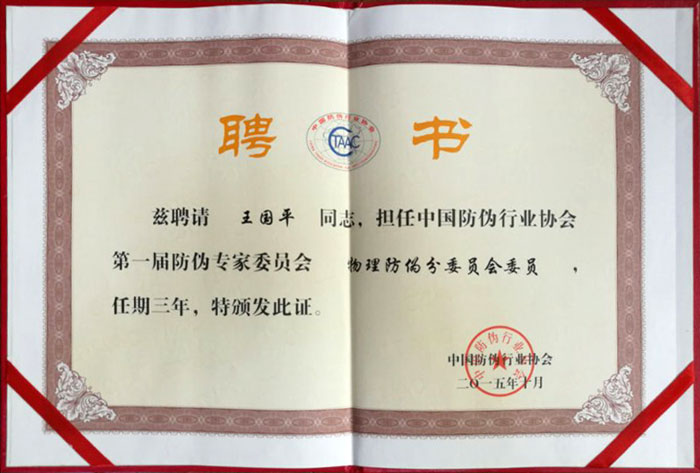 聘 书
中国防伪行业协会
CTAAC
兹聘请 王国平 同志，担任中国防伪行业协会
第一届防伪专家委员会 物理防伪分委员会委员 ，
任期三年，特颁发此证。
中国防伪行业协会
中国防伪行业协会
二〇一五年十月